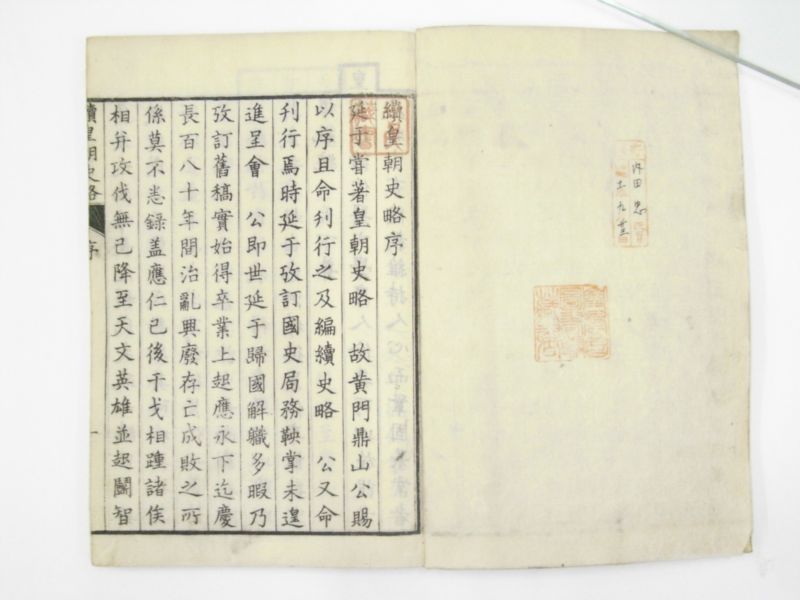 內田忠
續皇朝史略序
延于嘗著皇朝史略　故黄門鼎山公賜
以序且命刊行之及編續史略　公又命
刊行焉時延于攷訂國史局務鞅掌未遑
進呈會　公即世延于歸國解職多暇乃
攷訂舊稿實始得卒業上起應永下迄慶
長百八十年間治亂興廢存亡成敗之所
係莫不悉録盖應仁已後干戈相踵諸侯
相并攻伐無已降至天文英雄並起鬪智
續皇朝史略
序
一